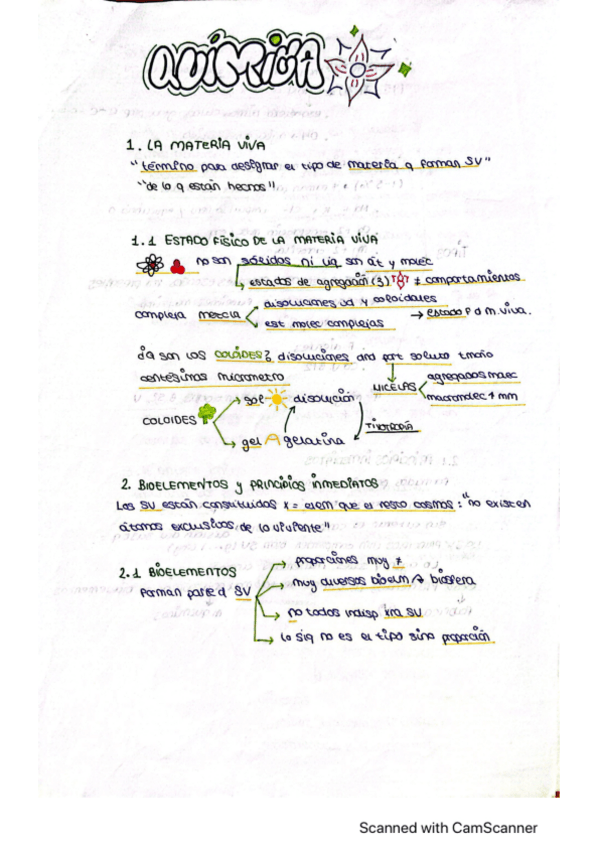 QUÍMICA
1. LA MATERIA VIVA
"término para designar el tipo de materia q forman SV"
"de lo q están hechos"
1.1 ESTADO FÍSICO DE LA MATERIA VIVA
no son sólidos ni líq son át y molec
estados de agregación (3) ≠ comportamientos
disoluciones id y coloidales
compleja mezcla
→ estado F d M. viva.
est molec complejas
son los COLOIDES? disoluciones dnd part soluto tmaño
centésimas micrometro
agregados molec
MICELAS
macromolec + mm
sol disolución
COLOIDES
TIXOTROPÍA
gel gelatina
2. BIOELEMENTOS y PRINCIPIOS INMEDIATOS
Los SV están constituidos x = elem que el resto cosmos: "no existen
átomos exclusivos de lo viviente"
proporciones muy ≠
2.1 BIOELEMENTOS
muy diversos biosfera
Forman parte d SV
no todos indisp xra SV
lo sig no es el tipo sino proporción
Scanned with CamScanner